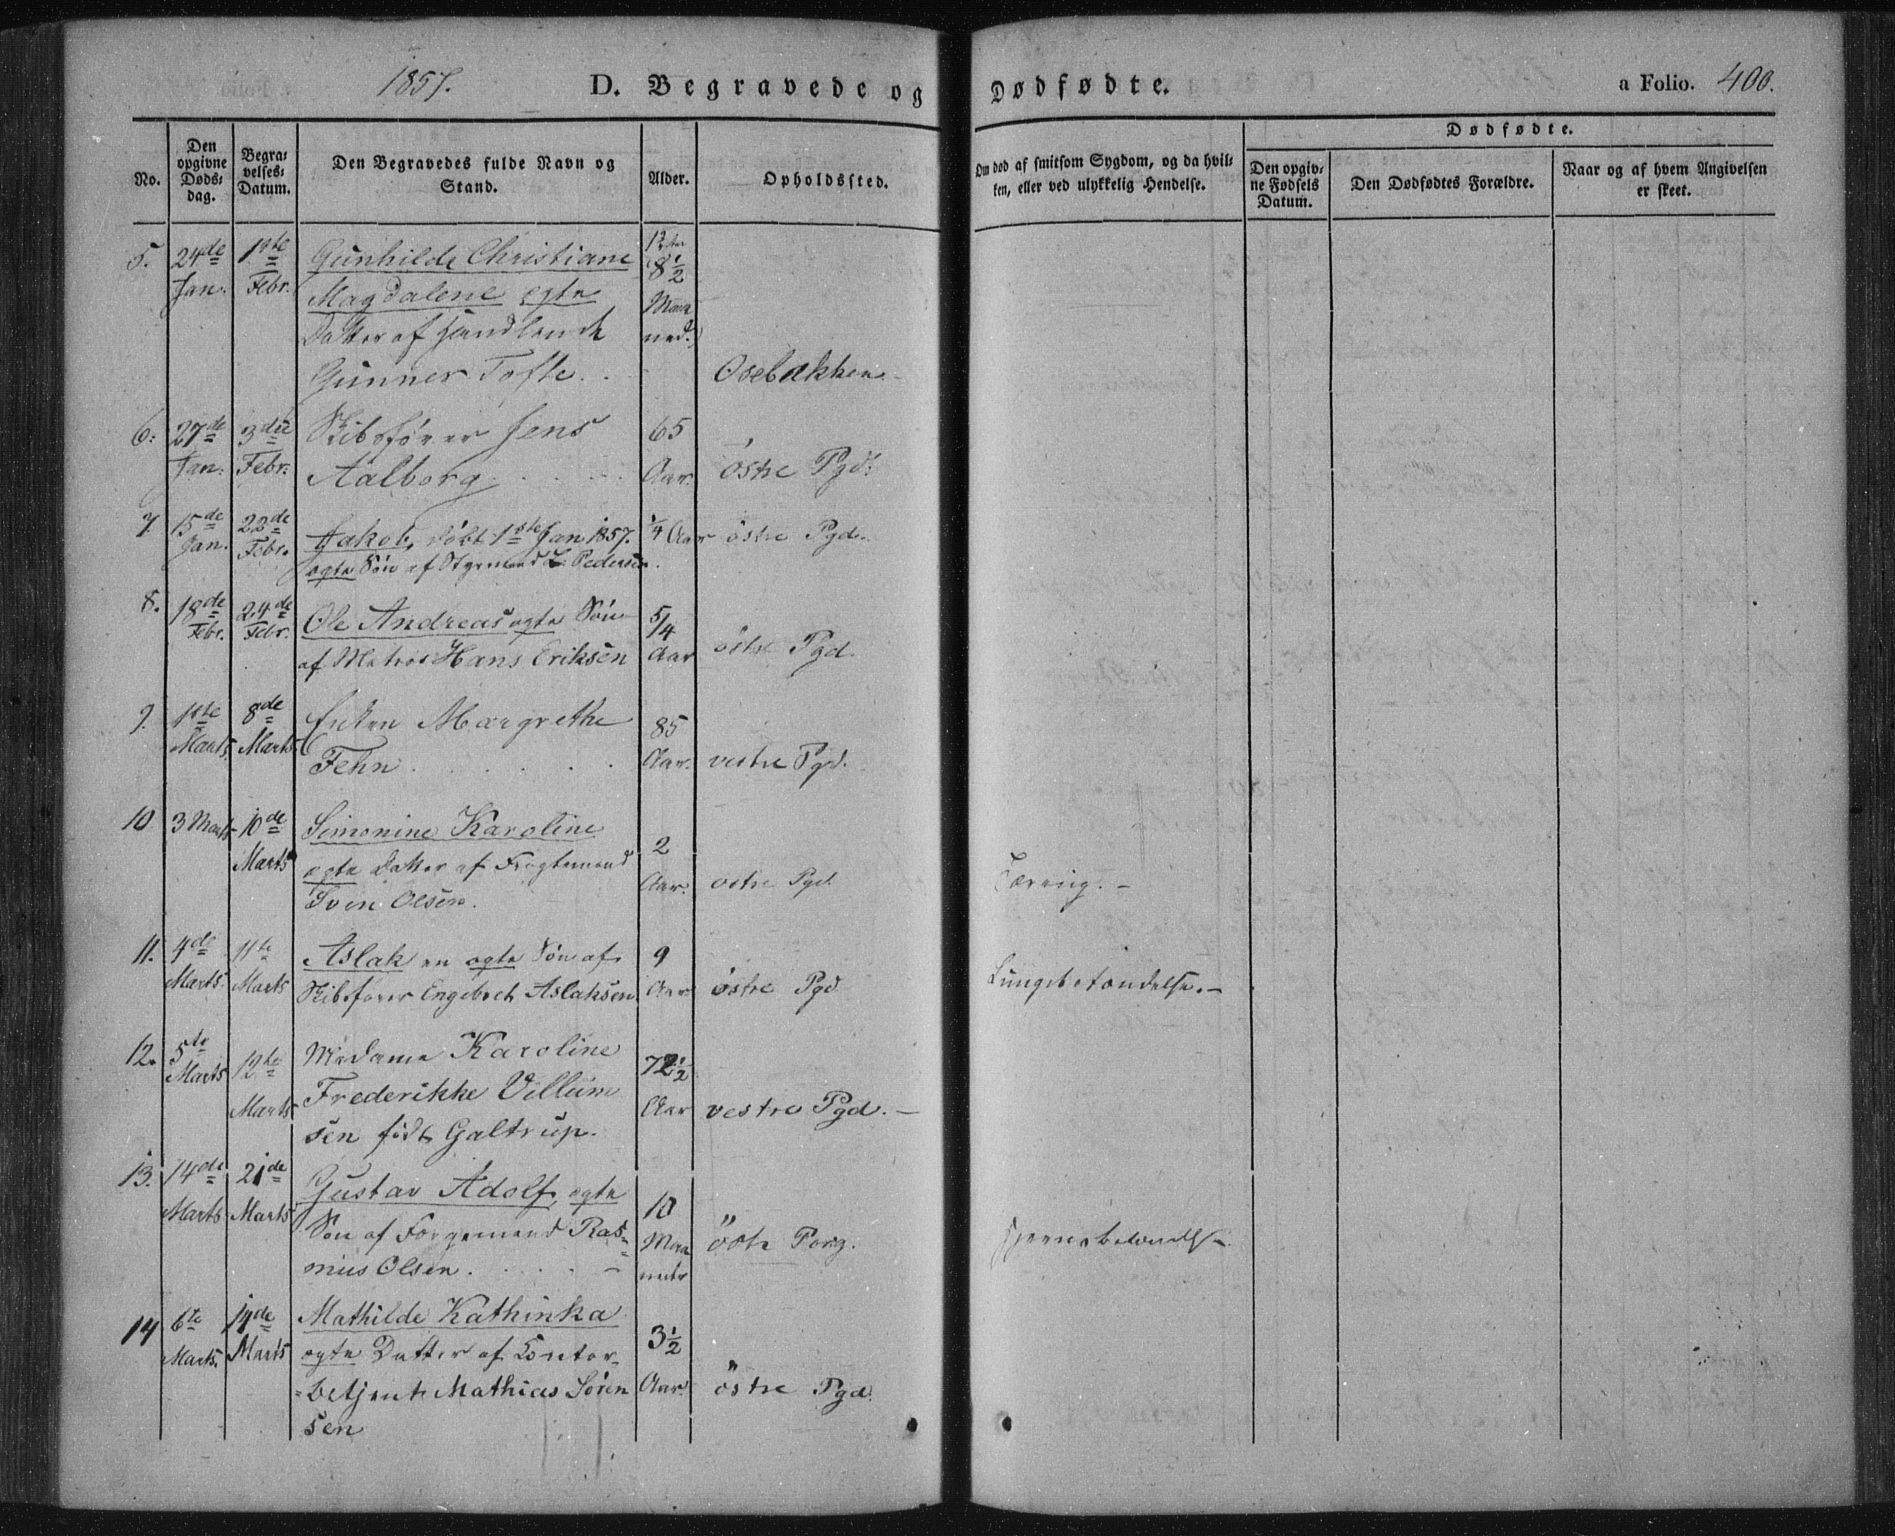 1857. D. Begravede og Dødfødte. a Folio. 400.
No.
Den opgivne Døds-dag.
Begra-velses-Datum.
Den Begravedes fulde Navn og Stand.
Alder.
Opholdssted.
Om død af smitsom Sygdom, og da hvil-
ken, eller ved ulykkelig Hendelse.
Dødfødte.
Den opgiv-ne Fødsels Datum.
Den Dødfødtes Forældre.
Naar og af hvem Angivelsen er skeet.
5. 24de 1ste Gunhilde Christiane
Jan. Febr. Magdalene ægte 8½ Maa
Datter af Handlende ned.
Gunner Tofte. Osebakken
6. 27de 3die Skibsfører Jens 65
Jan. Febr. Aalborg Aar østre Pgd.
7 15de 22de Jakob, døbt 1ste Jan 1857. ¼ Aar østre Pgd.
Jan. Febr. ægte Søn af Styrmand L. Pedersen.
8. 18de 24de Ole Andreas ægte Søn 5/4
Febr. Febr. af Matros Hans Eriksen Aar østre Pgd
9. 1ste 8de Enken Margrethe 85
Marts. Marts. Fehn Aar. vestre Pgd.
10 3 Marts 10de Simonine Karoline 2
Marts ægte Datter af Fragtemand Aar. østre Pgd. Tæring.
Sven Olsen.
11. 4de 11te Aslak en ægte Søn af 9
Marts. Marts Skibsfører Engebret Aslaksen Aar østre Pgd Lungebetændelse.
12. 5te 12te Madame Karoline 72½
Marts Marts Frederikke Villum Aar vestre Pgd.
sen født Galtrup.
13. 14de 21de Gustav Adolf, ægte 10
Marts Marts Søn af Færgemand Ras- Maa østr Porsg. Hjernebetændelse
mus Olsen. neder
14 6te 14de Mathilde Kathinka 3½
Marts. Marts ægte Datter af Contor-
betjent Mathias Søren Aar. østre Pgd.
sen